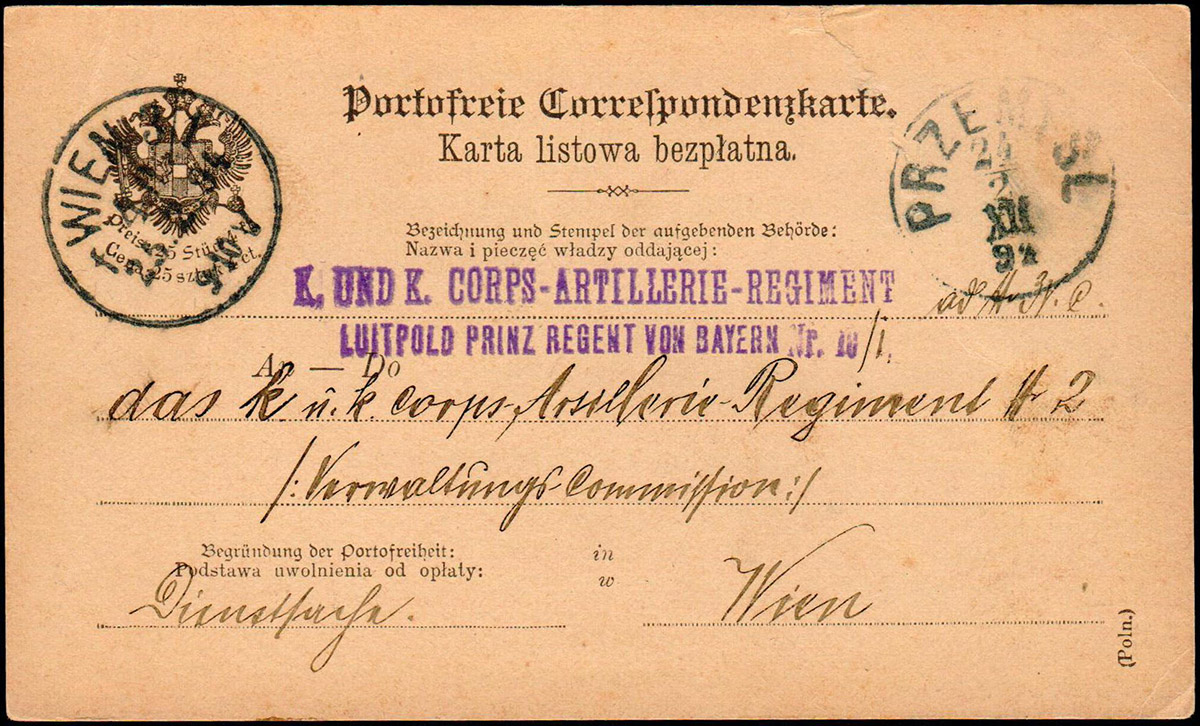 Portofreie Correspondenzkarte.
Karta listowa bezpłatna.
WIEN
Preis 25 Stück
Cena 25 sztuk ct.
PRZEMYŚL
24
XII
94
Bezeichnung und Stempel der aufgebenden Behörde:
Nazwa i pieczęć władzy oddającej:
K. UND K. CORPS-ARTILLERIE-REGIMENT
LUITPOLD PRINZ REGENT VON BAYERN Nr. 10/I.
An — Do
das k u. k. Corps-Artillerie-Regiment Nr 2
/: Verwaltungs Commission :/
Begründung der Portofreiheit:
Podstawa uwolnienia od opłaty:
in
w
Dienstsache.
Wien
(Poln.)